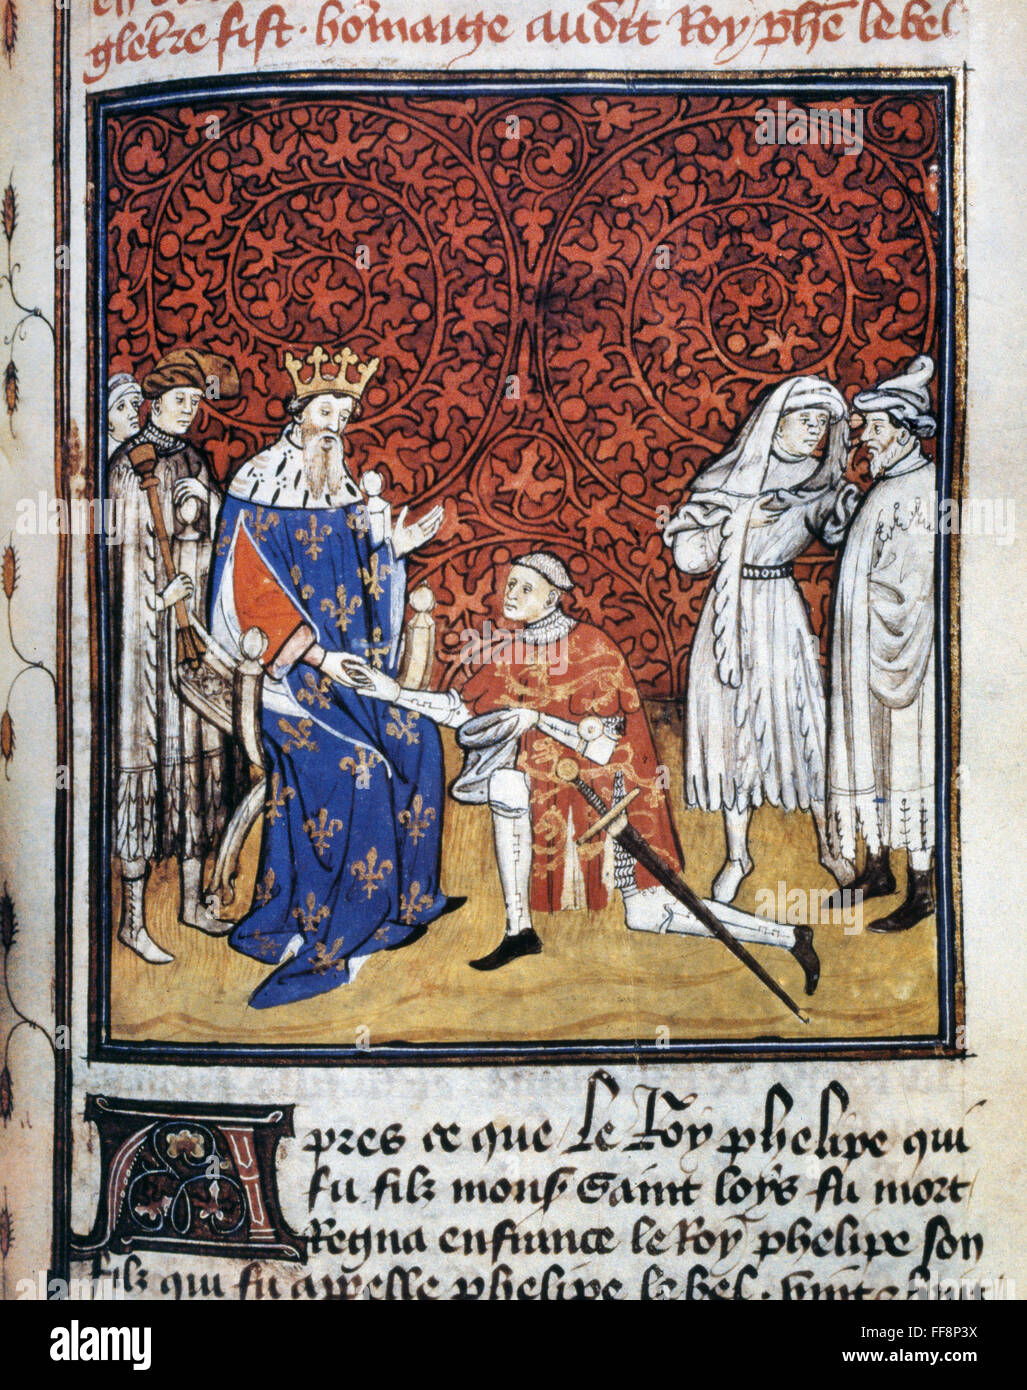 gleterre fist · hommaige audit Roy phe lebel
Apres ce que le Roy phelipe qui
fu filz monsr Saint loys fu mort
Regna en france le Roy phelipe son
filz qui fu appelle phelipe lebel ·
alamy
Image ID: FF8P3X
www.alamy.com